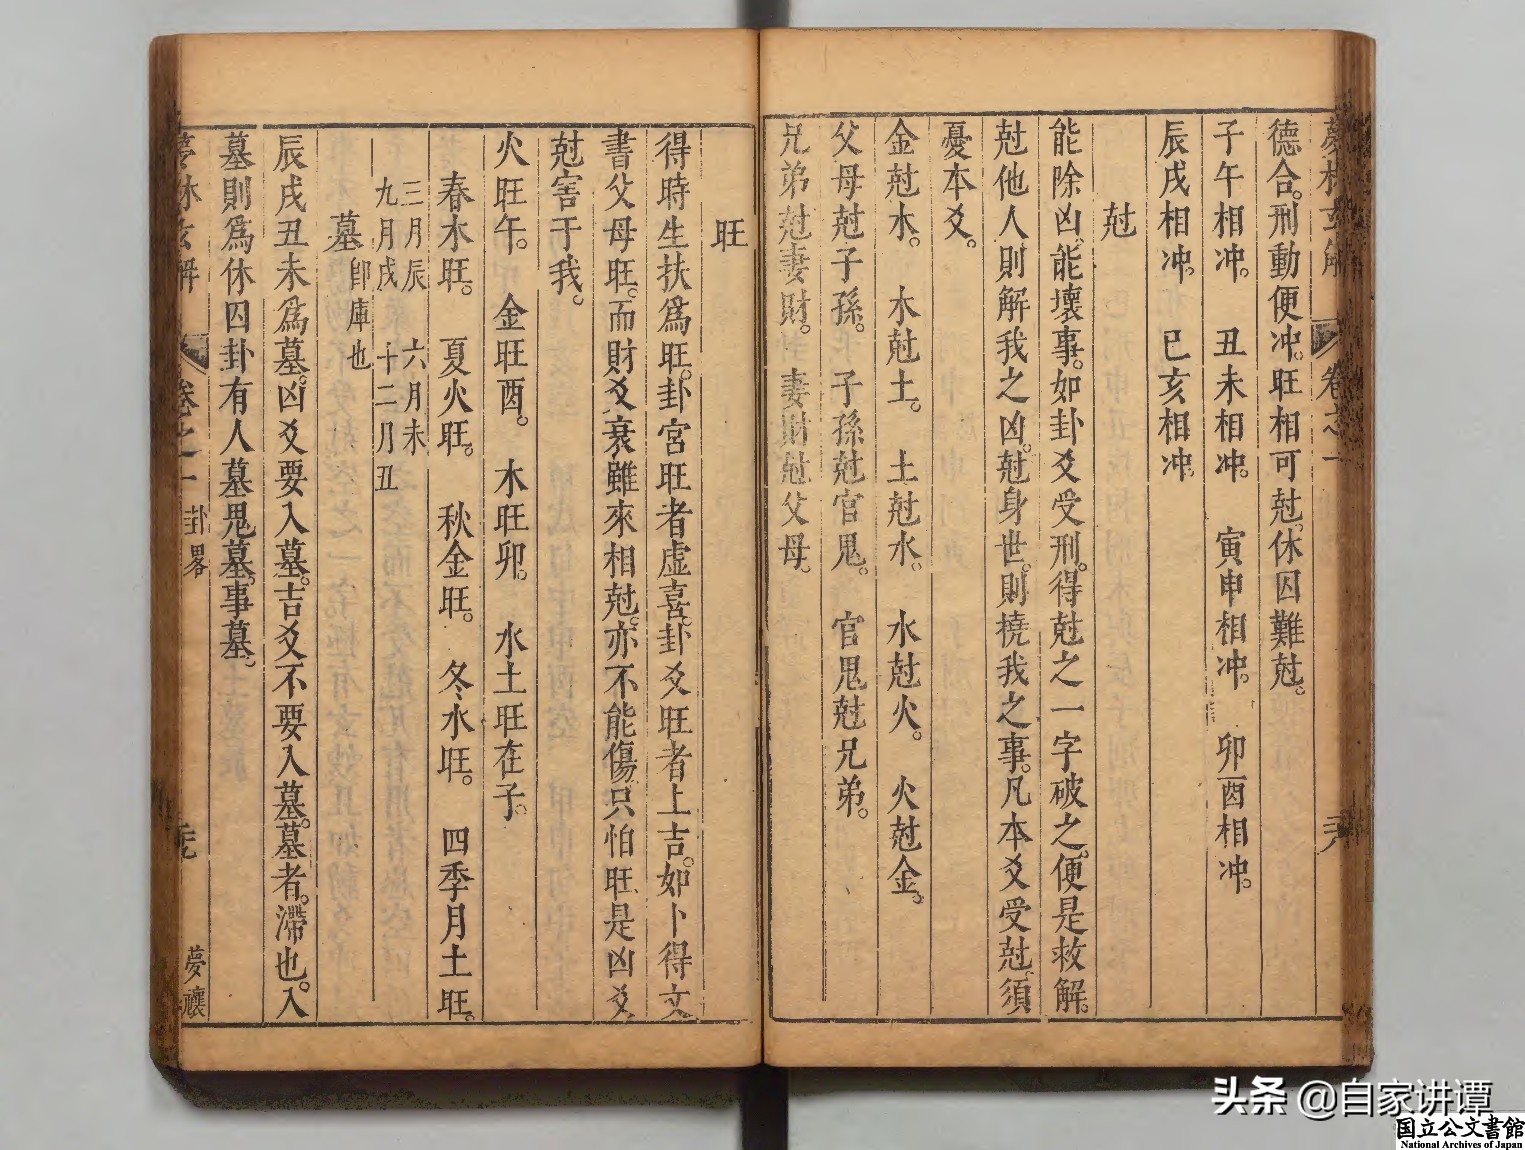 夢林玄解 卷之一 卅八
德合。刑動便冲。旺相可尅。休囚難尅。
子午相冲。 丑未相冲。 寅申相冲。 卯酉相冲。
辰戌相冲。 巳亥相冲。
尅
能除凶。能壞事。如卦爻受刑。得尅之一字破之。便是救解。
尅他人則解我之凶。尅身世。則撓我之事。凡本爻受尅。須
憂本爻。
金尅木。 木尅土。 土尅水。 水尅火。 火尅金。
父母尅子孫。 子孫尅官鬼。 官鬼尅兄弟。
兄弟尅妻財。 妻財尅父母。
旺
得時生扶爲旺。卦宮旺者虚喜。卦爻旺者上吉。如卜得文
書父母旺。而財爻衰。雖來相尅。亦不能傷。只怕旺是凶爻
尅害于我。
火旺午。 金旺酉。 木旺卯。 水土旺在子。
春木旺。 夏火旺。 秋金旺。 冬水旺。 四季月土旺。
三月辰 六月未
九月戌 十二月丑
墓 卽庫也
辰戌丑未爲墓。凶爻要入墓。吉爻不要入墓。墓者。滯也。入
墓則爲休囚。卦有人墓鬼墓。事墓。
夢林玄解 卷之一 卦畧 夢禳
头条 @自家讲谭
国立公文書館
National Archives of Japan